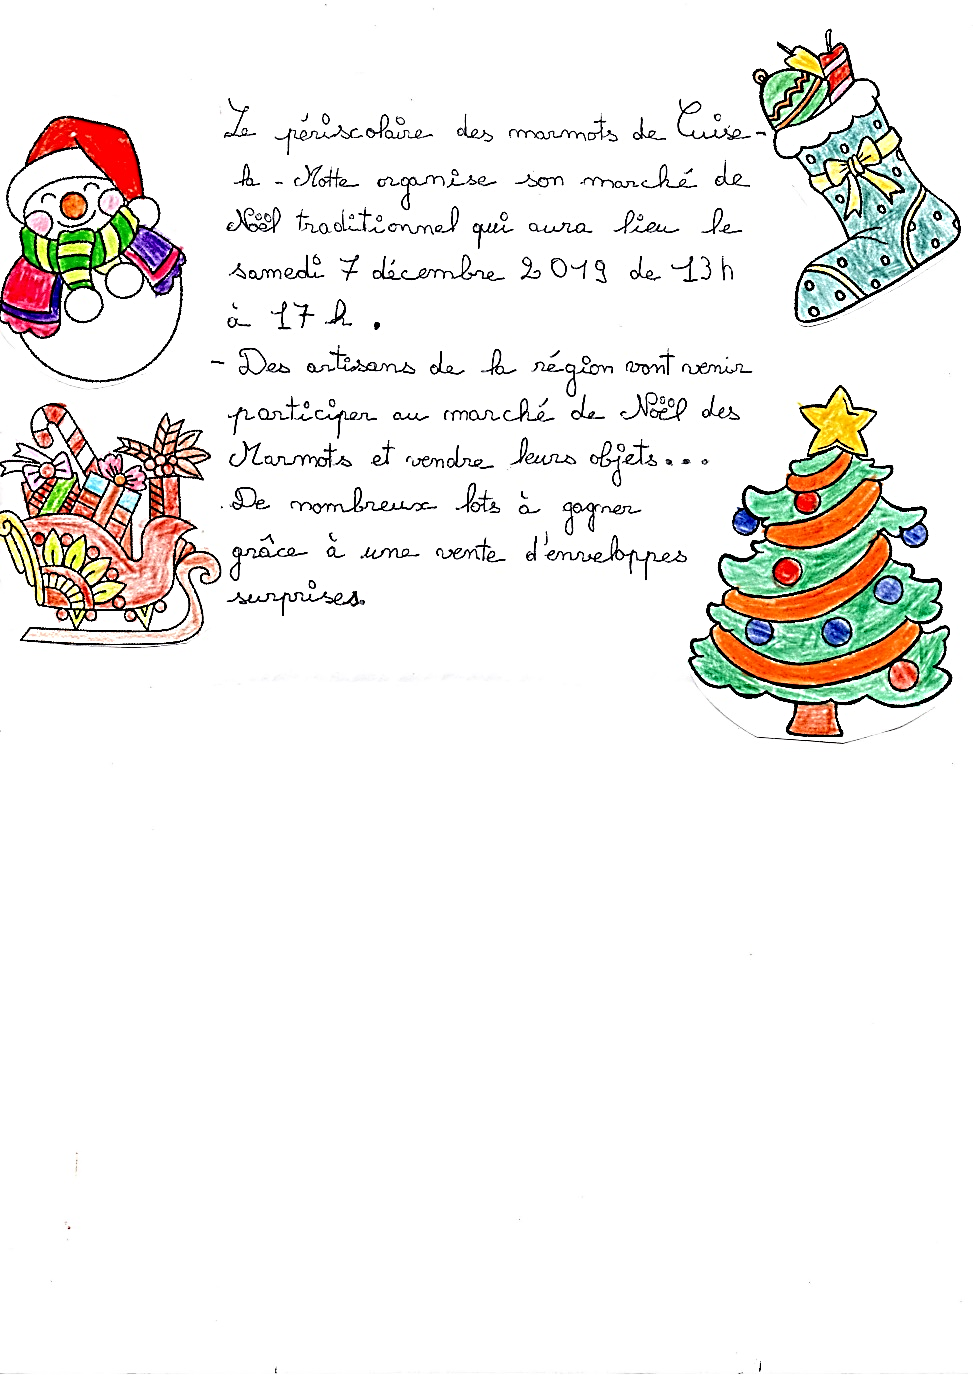 Le périscolaire des marmots de Cuise-
la - Motte organise son marché de
Noël traditionnel qui aura lieu le
samedi 7 décembre 2019 de 13h
à 17 h.
- Des artisans de la région vont venir
participer au marché de Noël des
Marmots et vendre leurs objets...
. De nombreux lots à gagner
grâce à une vente d'enveloppes
surprises.